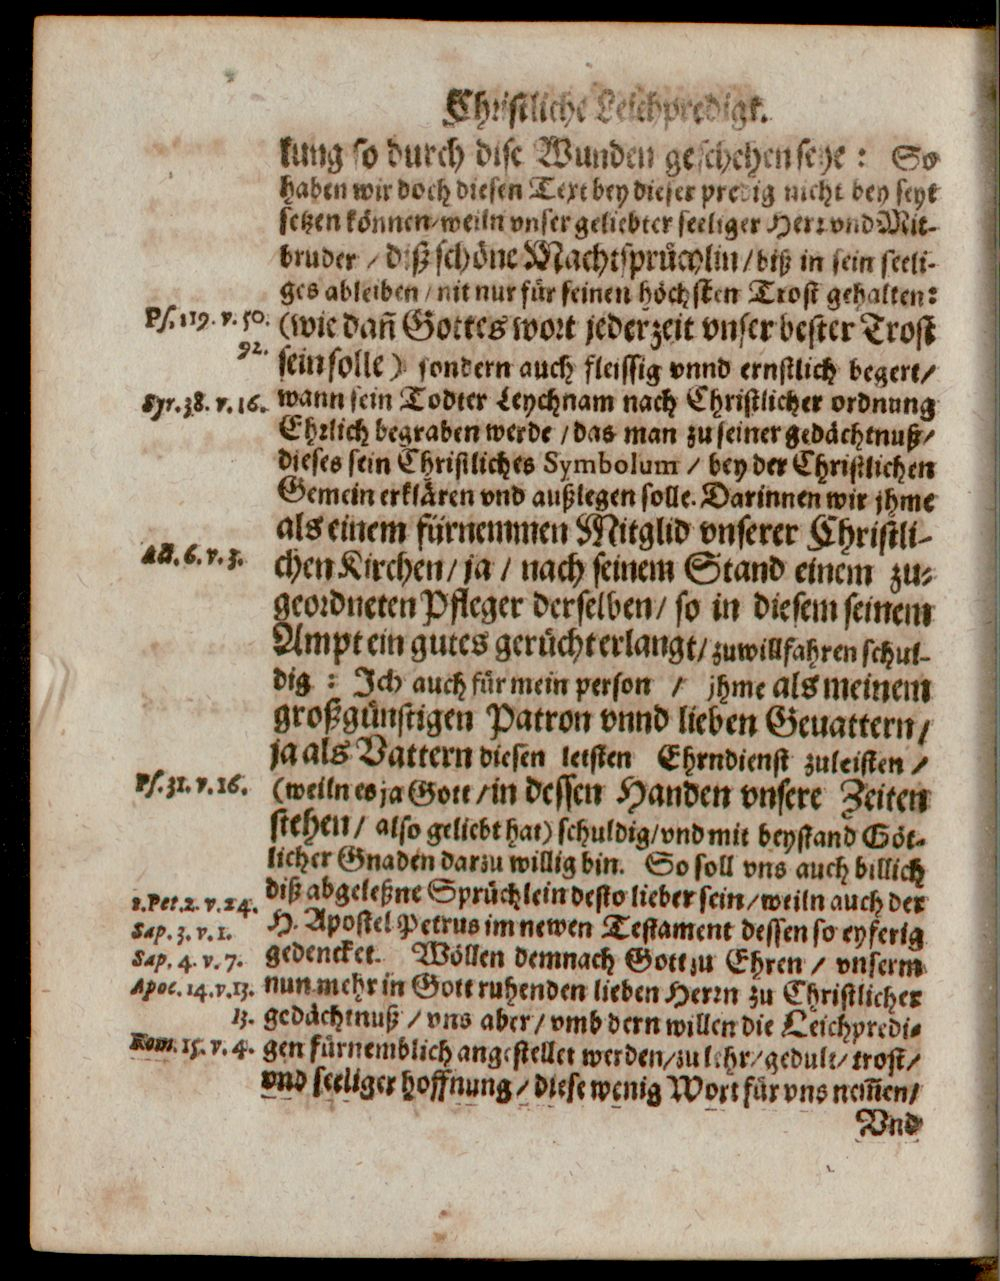 Christliche Leichpredigt.
kung so durch dise Wunden geschehen seye : So
haben wir doch diesen Text bey dieser predig nicht bey seyt
setzen können/ weiln vnser geliebter seeliger Herr vnd Mit-
bruder / diß schöne Machtsprüchlin / biß in sein seeli-
ges ableiben / nit nur für seinen höchsten Trost gehalten:
Ps. 119. v. 50. (wie dañ Gottes wort jederzeit vnser bester Trost
92. sein solle) sondern auch fleissig vnnd ernstlich begert/
Syr. 38. v. 16. wann sein Todter Leychnam nach Christlicher ordnung
Ehrlich begraben werde / das man zu seiner gedächtnuß/
dieses sein Christliches Symbolum / bey der Christlichen
Gemein erklären vnd außlegen solle. Darinnen wir jhme
als einem fürnemmen Mitglid vnserer Christli-
Act. 6. v. 3. chen Kirchen/ ja / nach seinem Stand einem zu-
geordneten Pfleger derselben/ so in diesem seinem
Ampt ein gutes gerücht erlangt/ zuwillfahren schul-
dig : Ich auch für mein person / jhme als meinem
großgünstigen Patron vnnd lieben Geuattern/
ja als Vattern diesen letsten Ehrndienst zuleisten /
Ps. 31. v. 16. (weiln es ja Gott / in dessen Handen vnsere Zeiten
stehen/ also geliebt hat) schuldig/ vnd mit beystand Göt-
licher Gnaden darzu willig bin. So soll vns auch billich
1. Pet. 2. v. 24. diß abgeleßne Sprüchlein desto lieber sein/ weiln auch der
Sap. 3. v. 1. H. Apostel Petrus im newen Testament dessen so eyferig
Sap. 4. v. 7. gedencket. Wöllen demnach Gott zu Ehren / vnserm
Apoc. 14. v. 13. nun mehr in Gott ruhenden lieben Herrn zu Christlicher
13. gedächtnuß / vns aber/ vmb dern willen die Leichpredi-
Rom. 15. v. 4. gen fürnemblich angestellet werden/ zu lehr/ gedult/ trost/
vnd seeliger hoffnung / diese wenig Wort für vns nem̃en/
Vnd